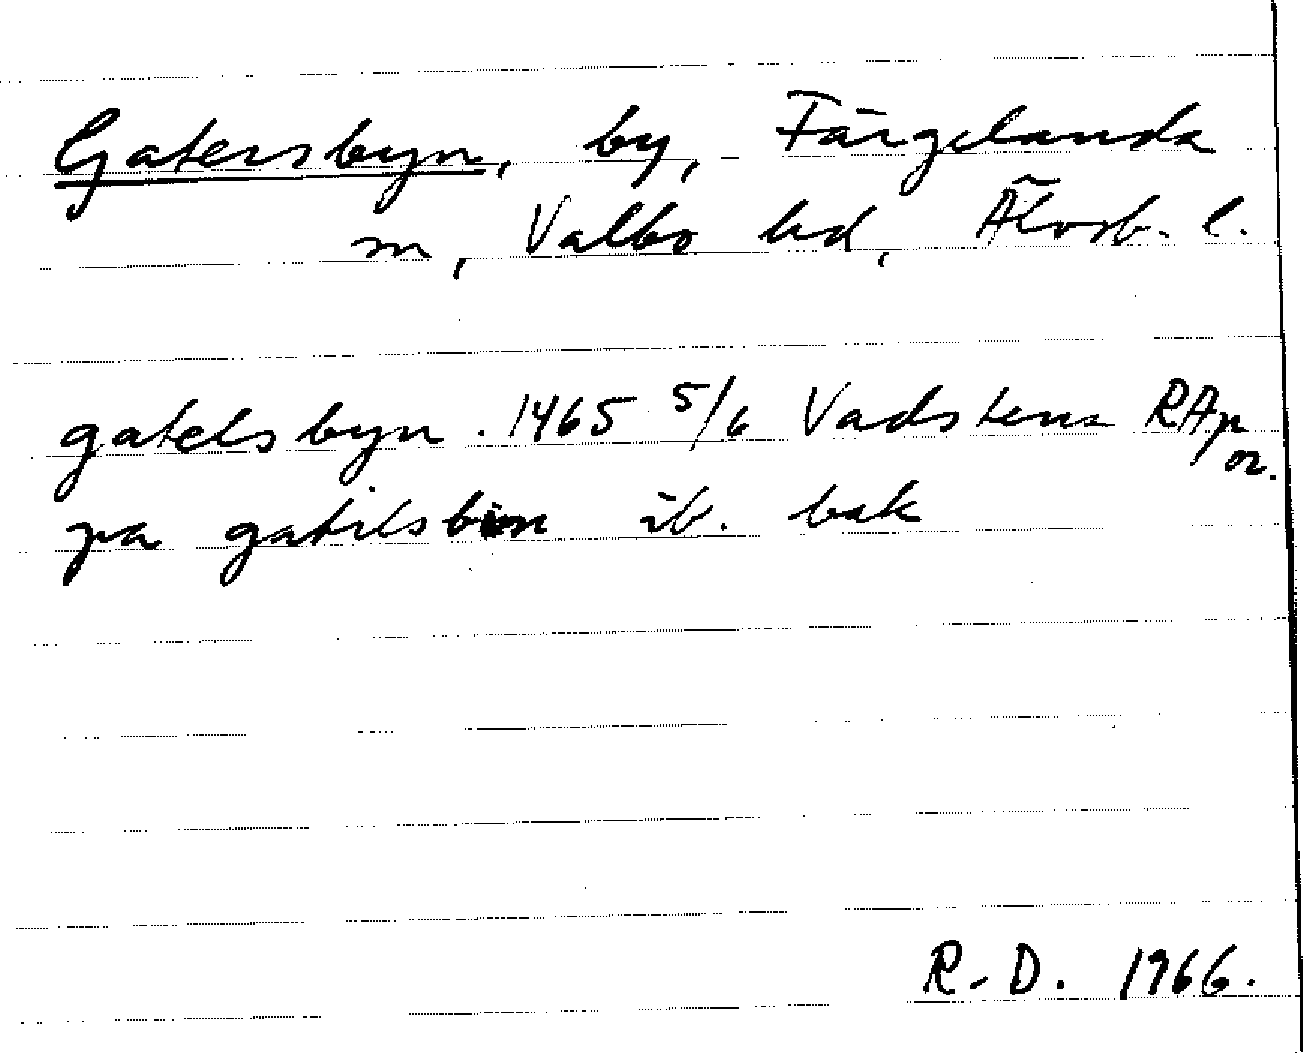 Gatersbyn, by, Färgelanda
sn, Valbo hd, Älvsb. l.
gatelsbyn. 1465 5/6 Vadstena RAp
or.
pa gatilsbin ib. bak
R-D. 1966.